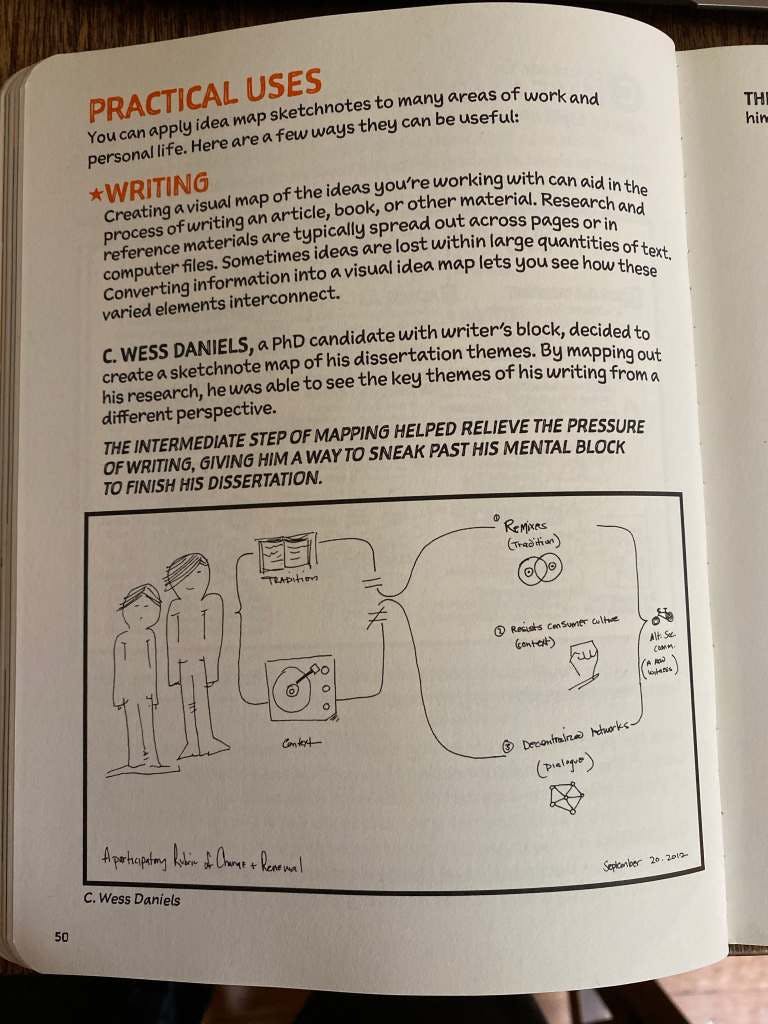 PRACTICAL USES
You can apply idea map sketchnotes to many areas of work and
personal life. Here are a few ways they can be useful:
★WRITING
Creating a visual map of the ideas you're working with can aid in the
process of writing an article, book, or other material. Research and
reference materials are typically spread out across pages or in
computer files. Sometimes ideas are lost within large quantities of text.
Converting information into a visual idea map lets you see how these
varied elements interconnect.
C. WESS DANIELS, a PhD candidate with writer's block, decided to
create a sketchnote map of his dissertation themes. By mapping out
his research, he was able to see the key themes of his writing from a
different perspective.
THE INTERMEDIATE STEP OF MAPPING HELPED RELIEVE THE PRESSURE
OF WRITING, GIVING HIM A WAY TO SNEAK PAST HIS MENTAL BLOCK
TO FINISH HIS DISSERTATION.
TRADITION
Context
① Remixes
(Tradition)
② Resists consumer culture
(context)
③ Decentralized Networks
(Dialogue)
Alt. Soc.
comm.
(A new
witness)
A participatory Rubric of Change + Renewal
September 20. 2012
C. Wess Daniels
50
THE
him